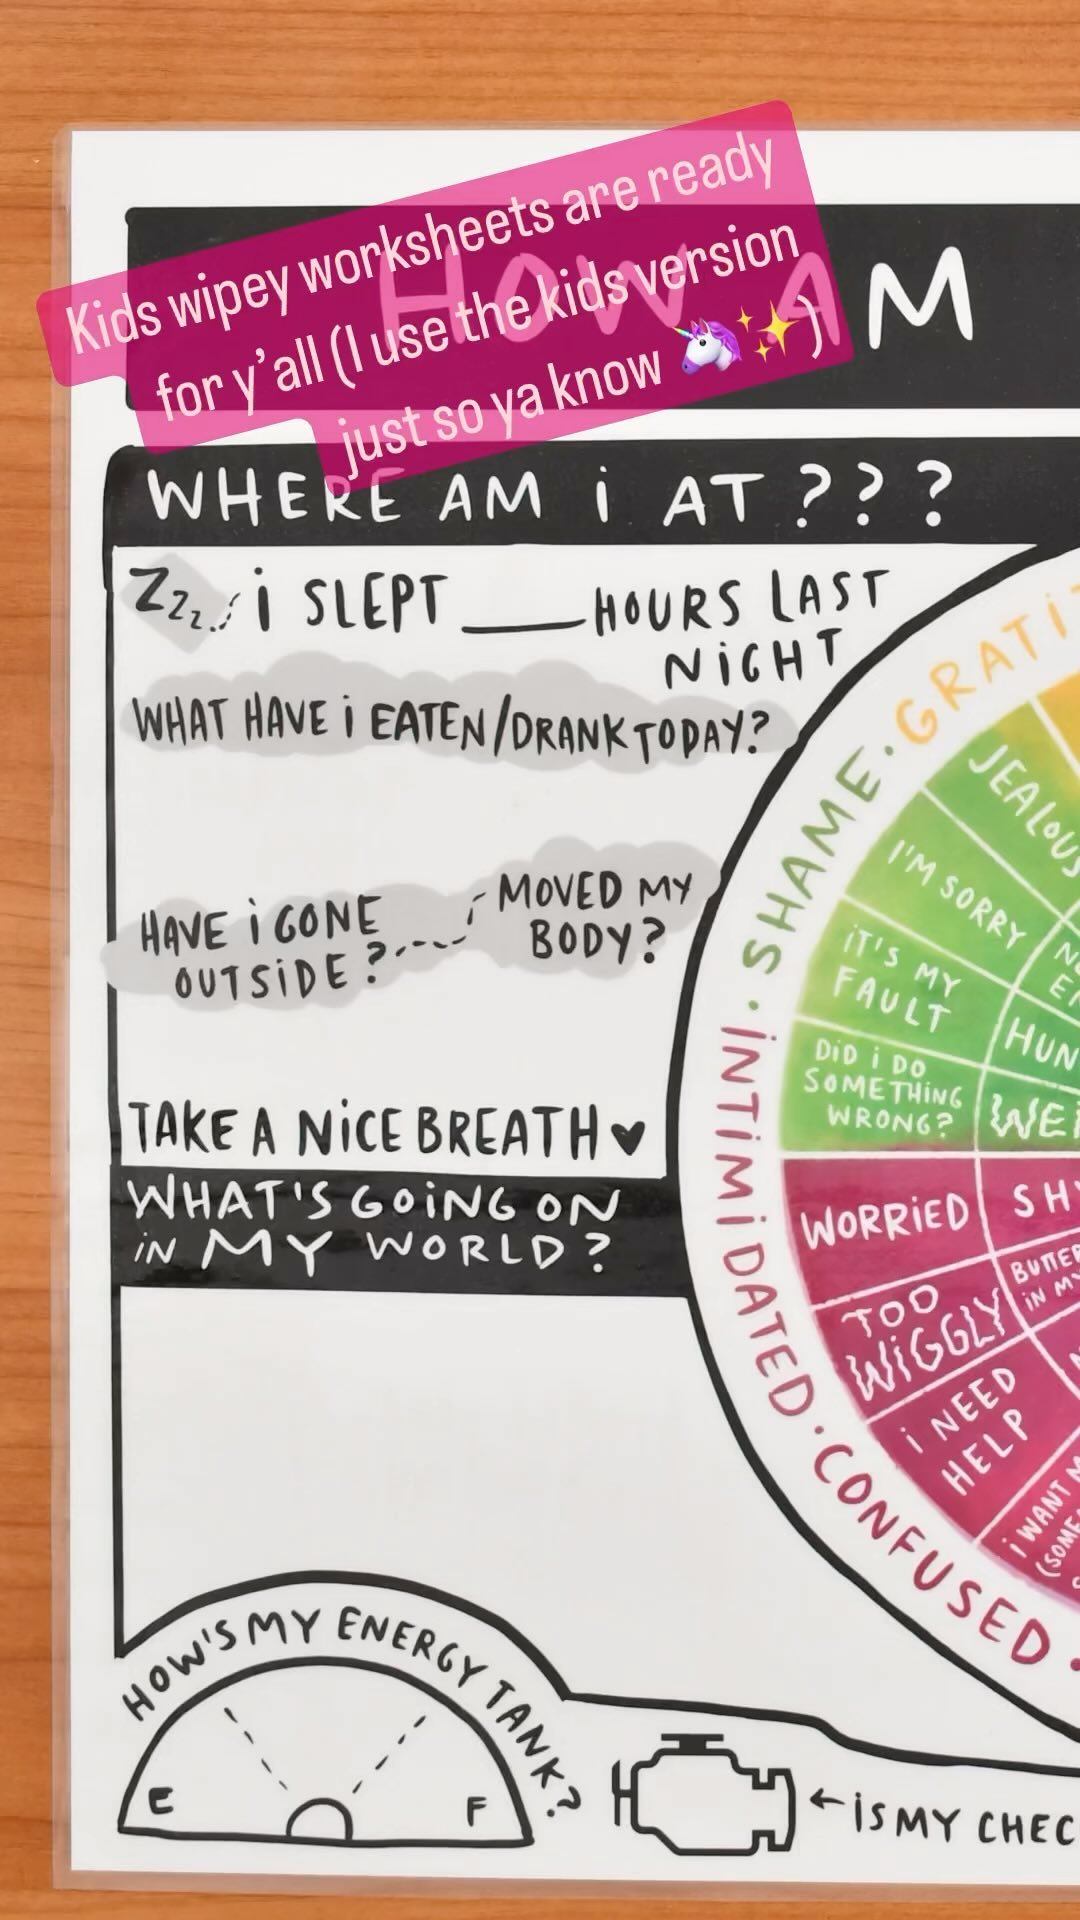 Kids wipey worksheets are ready
for y'all (I use the kids version
just so ya know 🦄✨)
HOW AM
WHERE AM i AT ???
Zzz... i SLEPT ____ HOURS LAST
NiGHT
WHAT HAVE i EATEN/DRANK TODAY?
HAVE i GONE
OUTSiDE?
MOVED MY
BODY?
TAKE A NiCE BREATH ♥
WHAT'S GOiNG ON
iN MY WORLD?
HOW'S MY ENERGY TANK?
E F
← iS MY CHEC
SHAME · GRATi
JEALOUS
i'M SORRY
iT'S MY
FAULT
HUN
DiD i DO
SOMETHiNG
WRONG?
WORRiED
SHY
TOO
WiGGLY
BUTTER
iN MY
i NEED
HELP
i WANT
iNTiMiDATED · CONFUSED ·